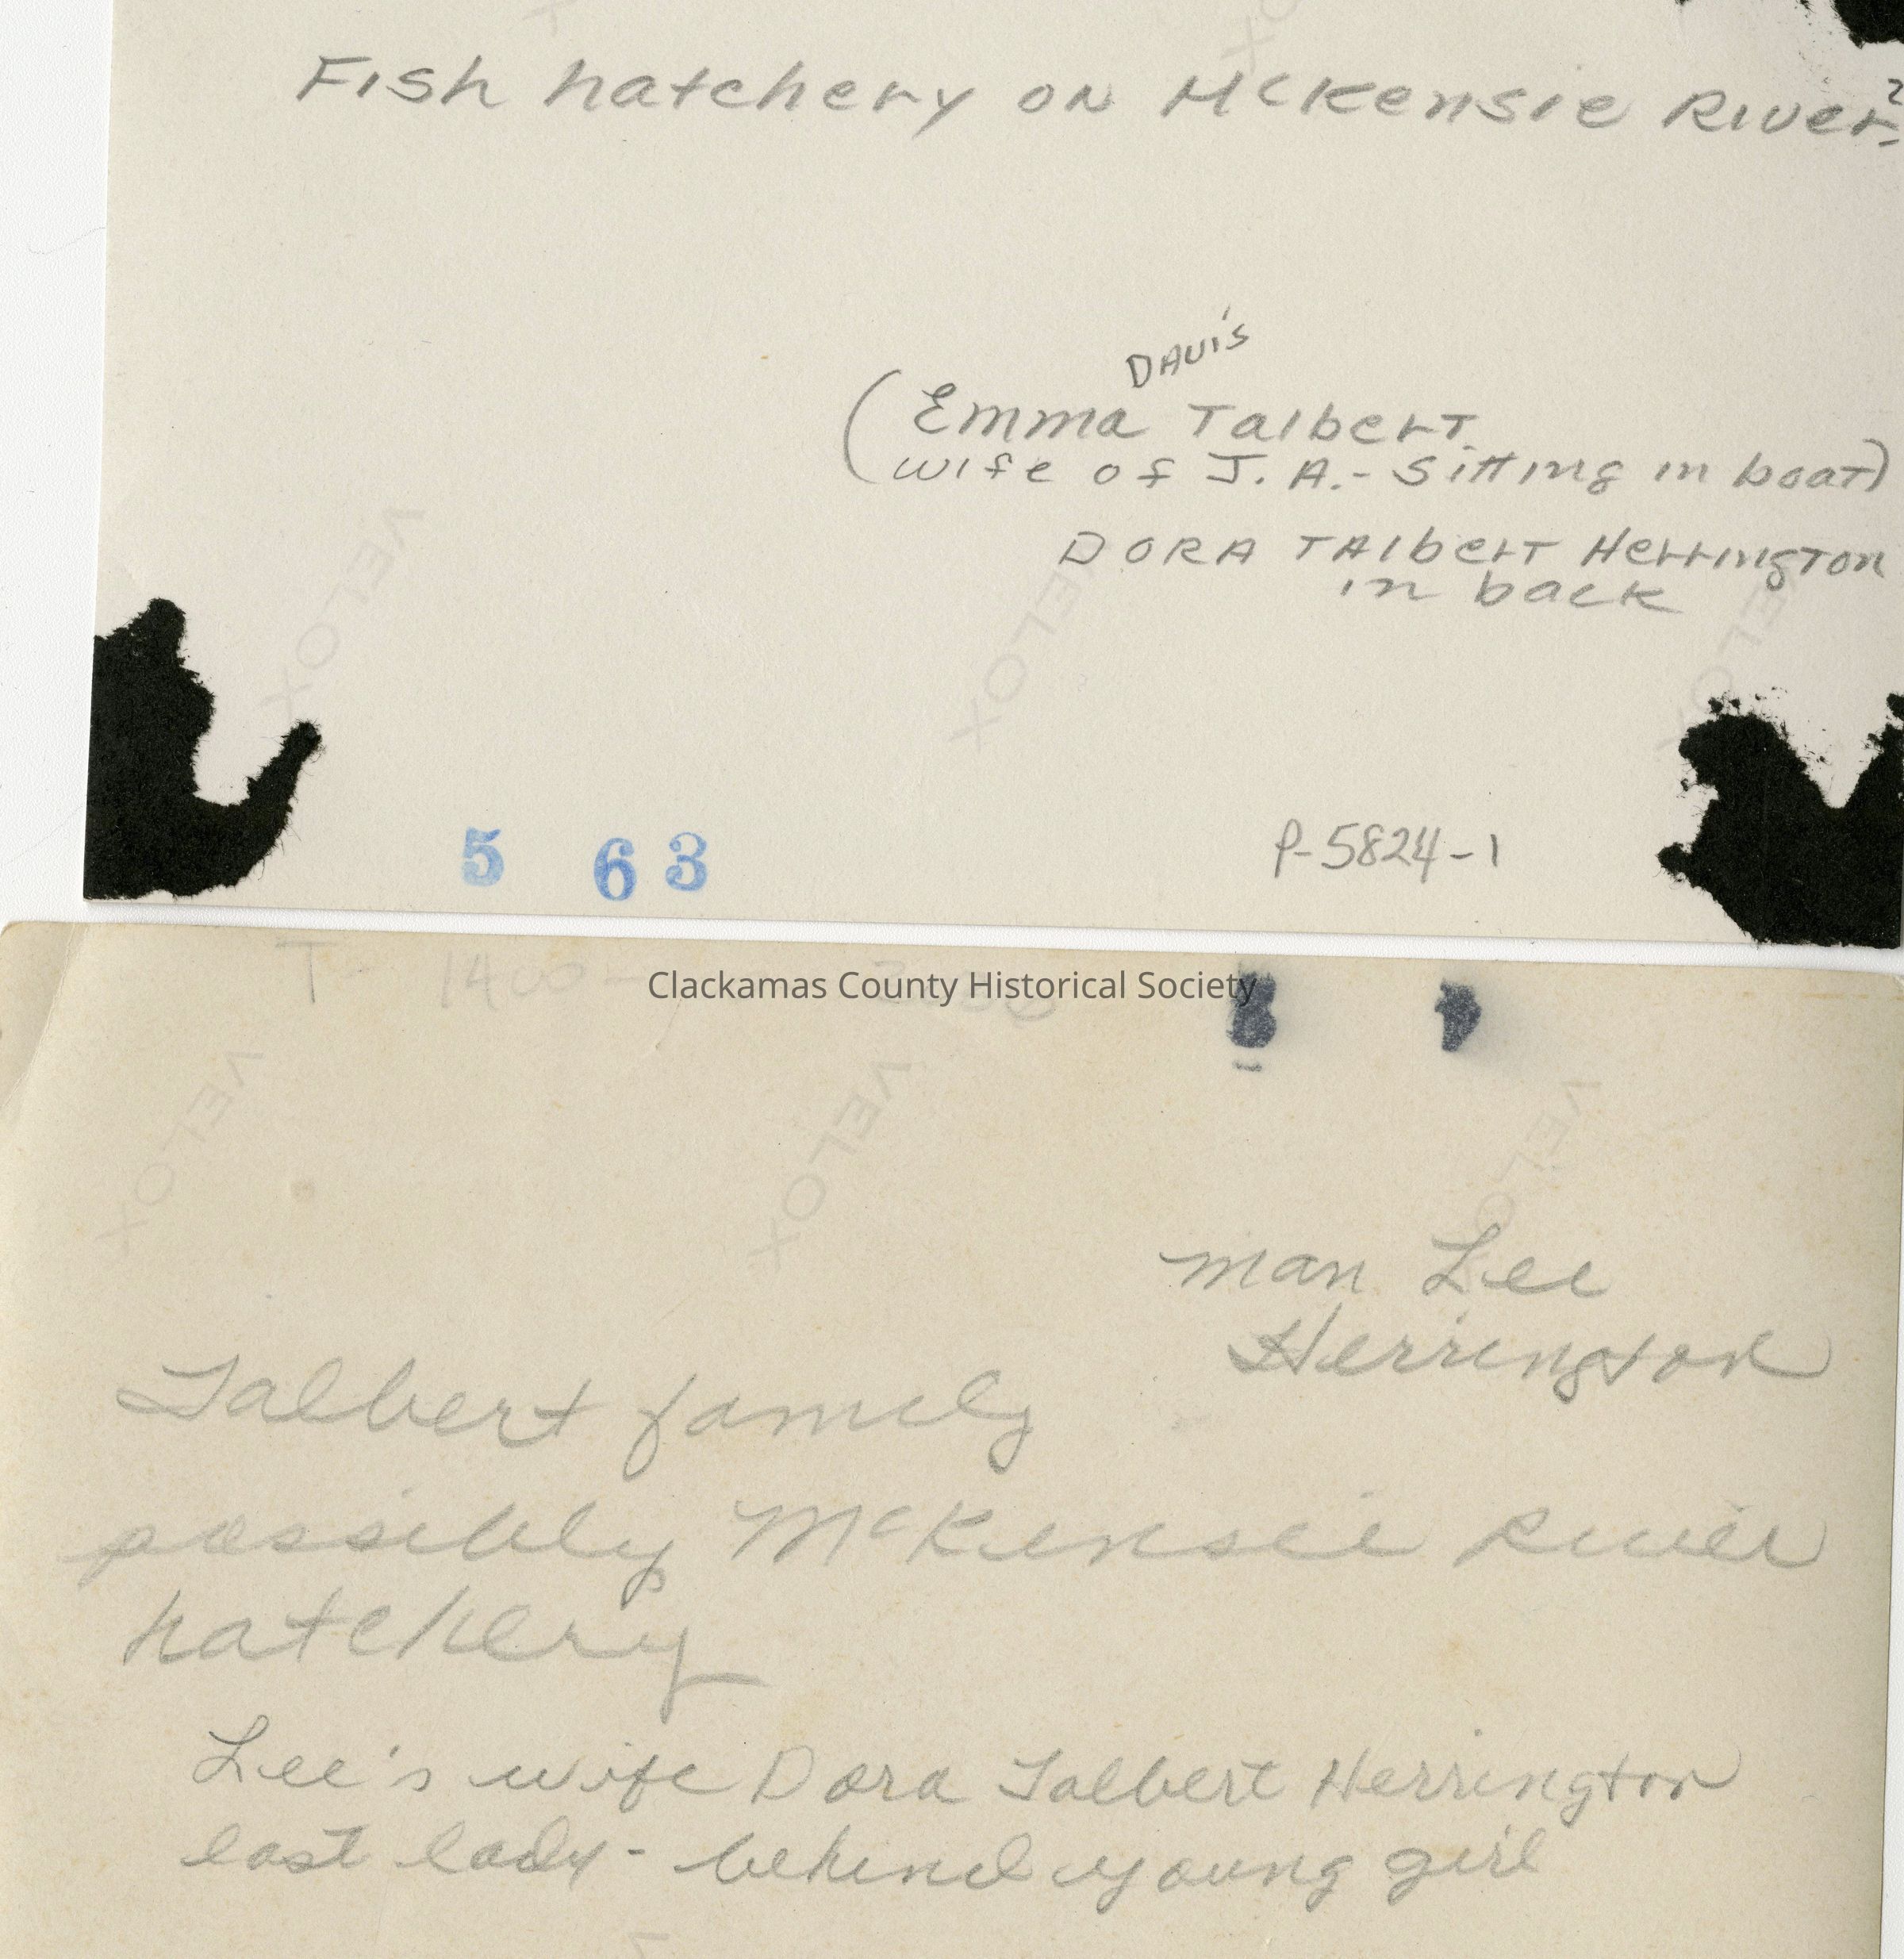 Fish hatchery on McKensie River?
Davis
(Emma Talbert
wife of J. A. - Sitting in boat)
DORA TAlbert Herrington
in back
VELOX
VELOX
VELOX
5 63
P-5824-1
Clackamas County Historical Society
VELOX
VELOX
VELOX
man Lee
Herrington
Talbert family
possibly McKensie River
hatchery
Lee's wife Dora Talbert Herrington
last lady - behind young girl